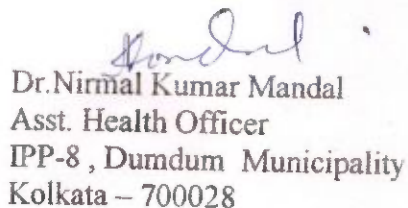 Dr.Nirmal Kumar Mandal
Asst. Health Officer
IPP-8 , Dumdum Municipality
Kolkata – 700028